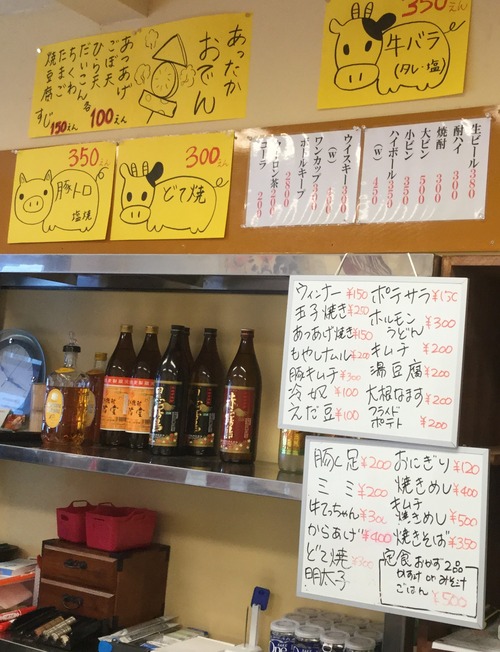 あったか
おでん
あつあげ
ごぼ天
ひら天
だいこん
ちくわ
たまご
焼豆腐
各100えん
すじ150えん
350えん
牛バラ
(タレ・塩)
350えん
豚トロ
塩焼
300えん
どて焼
生ビール 380
酎ハイ 300
焼酎 300
大ビン 500
小ビン
ハイボール 350
(W) 450
ウイスキー 300
(W)
ワンカップ 300
ボトルキープ
280
ウーロン茶 200
コーラ 200
ウィンナー ¥150
玉子焼き ¥250
あつあげ焼き ¥150
もやしナムル ¥200
豚キムチ ¥300
冷奴 ¥100
えだ豆 ¥100
ポテサラ ¥150
ホルモン
うどん ¥300
キムチ ¥200
湯豆腐 ¥200
大根なます ¥200
フライド
ポテト ¥200
豚足 ¥200
ミミ ¥200
牛てっちゃん ¥300
からあげ ¥400
どて焼 ¥300
明太子
おにぎり ¥120
焼きめし ¥400
キムチ
焼きめし ¥500
焼きそば ¥350
定食 おかず2品
かすけ or みそ汁
ごはん ¥500